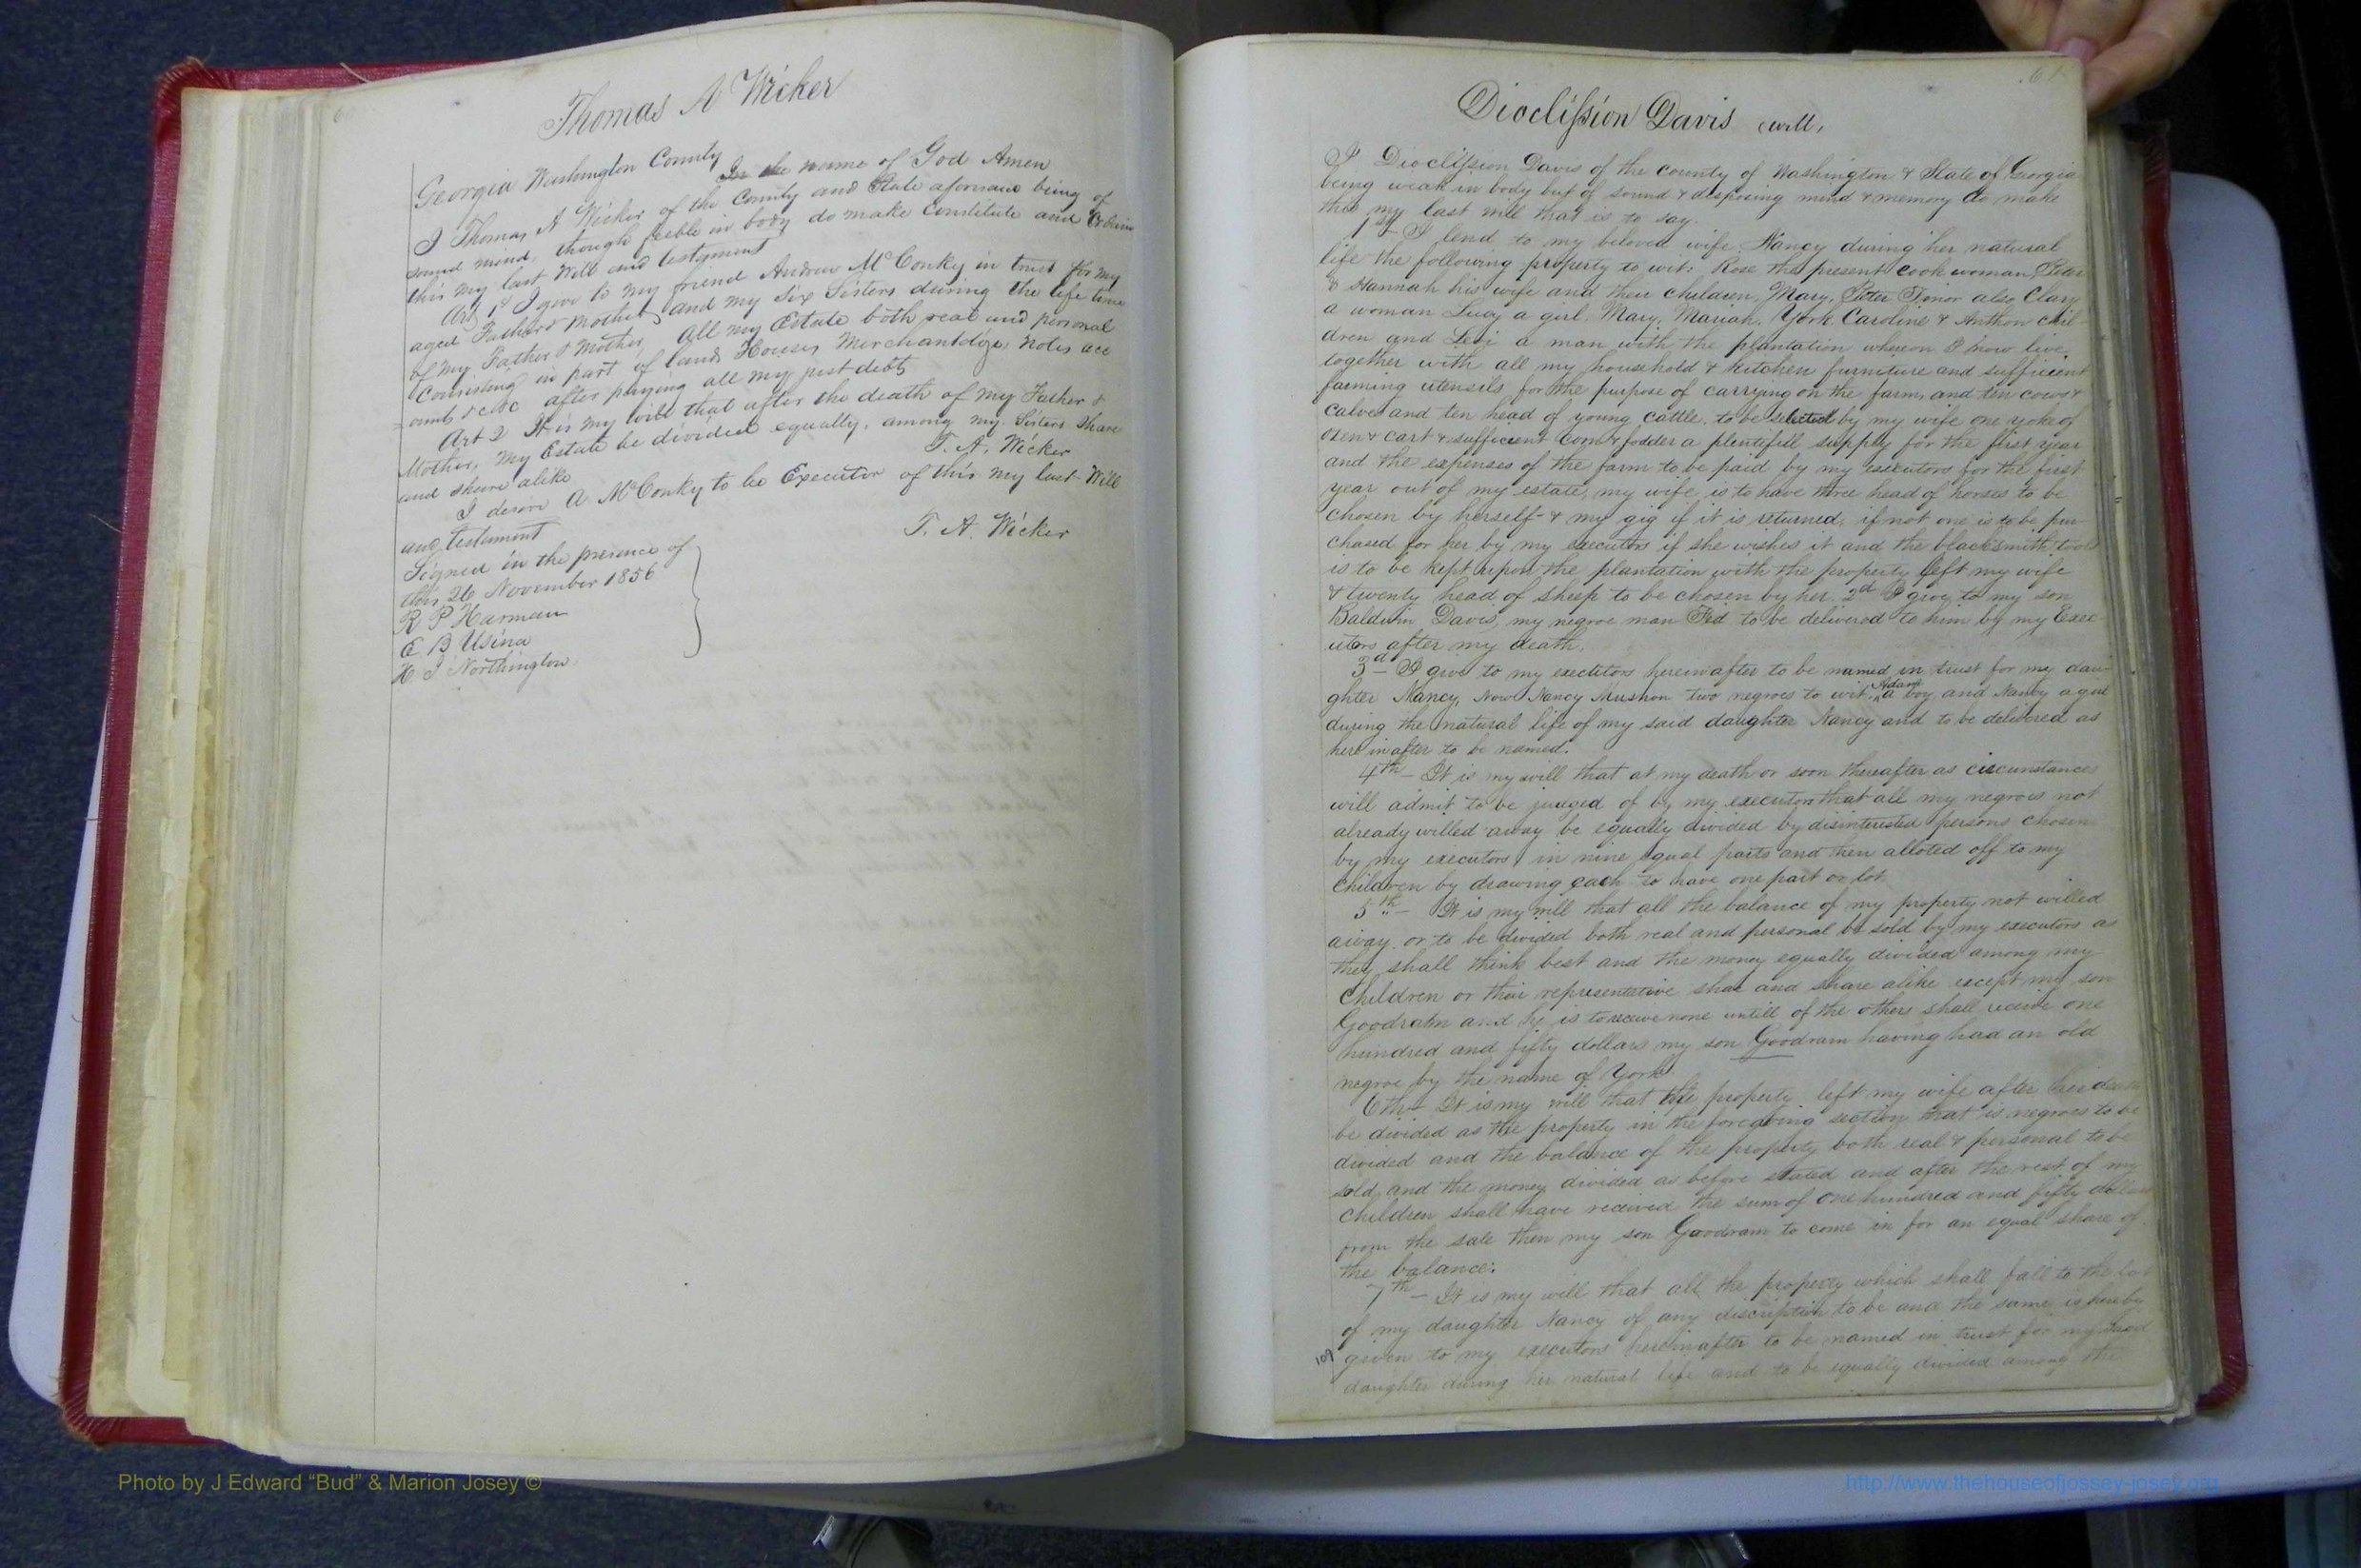 Thomas A Wicker
Georgia Washington County
In the name of God Amen
I Thomas A Wicker of the County and State aforesaid being of
sound mind, though feeble in body do make Constitute and Ordain
this my last Will and testament
Art 1st I give to my friend Andrew McConky in trust for my
aged Father & Mother, and my six Sisters during the life time
of my Father & Mother, All my Estate both real and personal
Consisting in part of lands Houses Merchantdize, notes acc
ounts &c &c after paying all my just debts
Art 2 It is my will that after the death of my Father &
Mother, My Estate be divided equally, among my Sisters Share
and share alike
T. A. Wicker
I desire A McConky to be Executor of this my last Will
and testament
T. A. Wicker
Signed in the presence of
this 26 November 1856
R P Harman
E B Usina
H I Northington
61
Dioclission Davis will,
I Dioclission Davis of the county of Washington & State of Georgia
being weak in body but of sound & disposing mind & memory do make
this my last will that is to say.
1st — I lend to my beloved wife Nancy during her natural
life the following property to wit: Rose the present cook woman, Peter
& Hannah his wife and their children, Mary, Peter, also Clary
a woman Lucy a girl, Mary, Mariah, York, Caroline & Anthon chil
dren and Levi a man with the plantation whereon I now live,
together with all my household & kitchen furniture and sufficient
farming utensils for the purpose of carrying on the farm, and ten cows &
calves and ten head of young cattle, to be selected by my wife one yoke of
oxen & cart & sufficient corn & fodder a plentifull supply for the first year
and the expenses of the farm to be paid by my executors for the first
year out of my estate, my wife is to have three head of horses to be
chosen by herself & my gig if it is returned, if not one is to be pur
chased for her by my executors if she wishes it and the blacksmith tools
is to be kept upon the plantation with the property left my wife
& twenty head of sheep to be chosen by her. 2d I give to my son
Baldwin Davis, my negroe man to be delivered to him by my Exec
utors after my death.
3d — I give to my executors hereinafter to be named in trust for my dau
ghter Nancy, Now Nancy two negroes to wit, Adam a boy, and Nancy a girl
during the natural life of my said daughter Nancy and to be delivered as
here in after to be named.
4th — It is my will that at my death or soon thereafter as circumstances
will admit to be judged of by my executors that all my negroes not
already willed away be equally divided by disinterested persons chosen
by my executors, in nine equal parts and then alloted off to my
children by drawing each to have one part or lot
5th — It is my will that all the balance of my property not willed
away or to be divided both real and personal be sold by my executors as
they shall think best and the money equally divided among my
Children or their representative shar and share alike except my son
Goodram and he is to receive none untill of the others shall receive one
hundred and fifty dollars my son Goodram having had an old
negroe by the name of York.
6th — It is my will that the property left my wife after her death
be divided as the property in the foregoing section that is negroes to be
divided and the balance of the property both real & personal to be
sold, and the money divided as before stated and after the rest of my
children shall have received the sum of one hundred and fifty dollars
from the sale then my son Goodram to come in for an equal share of
the balance.
7th — It is my will that all the property which shall fall to the lot
of my daughter Nancy of any discription to be and the same is hereby
given to my executors hereinafter to be named in trust for my said
daughter during her natural life and to be equally divided among the
109
Photo by J Edward “Bud” & Marion Josey ©
http://www.thehouseofjossey-josey.org